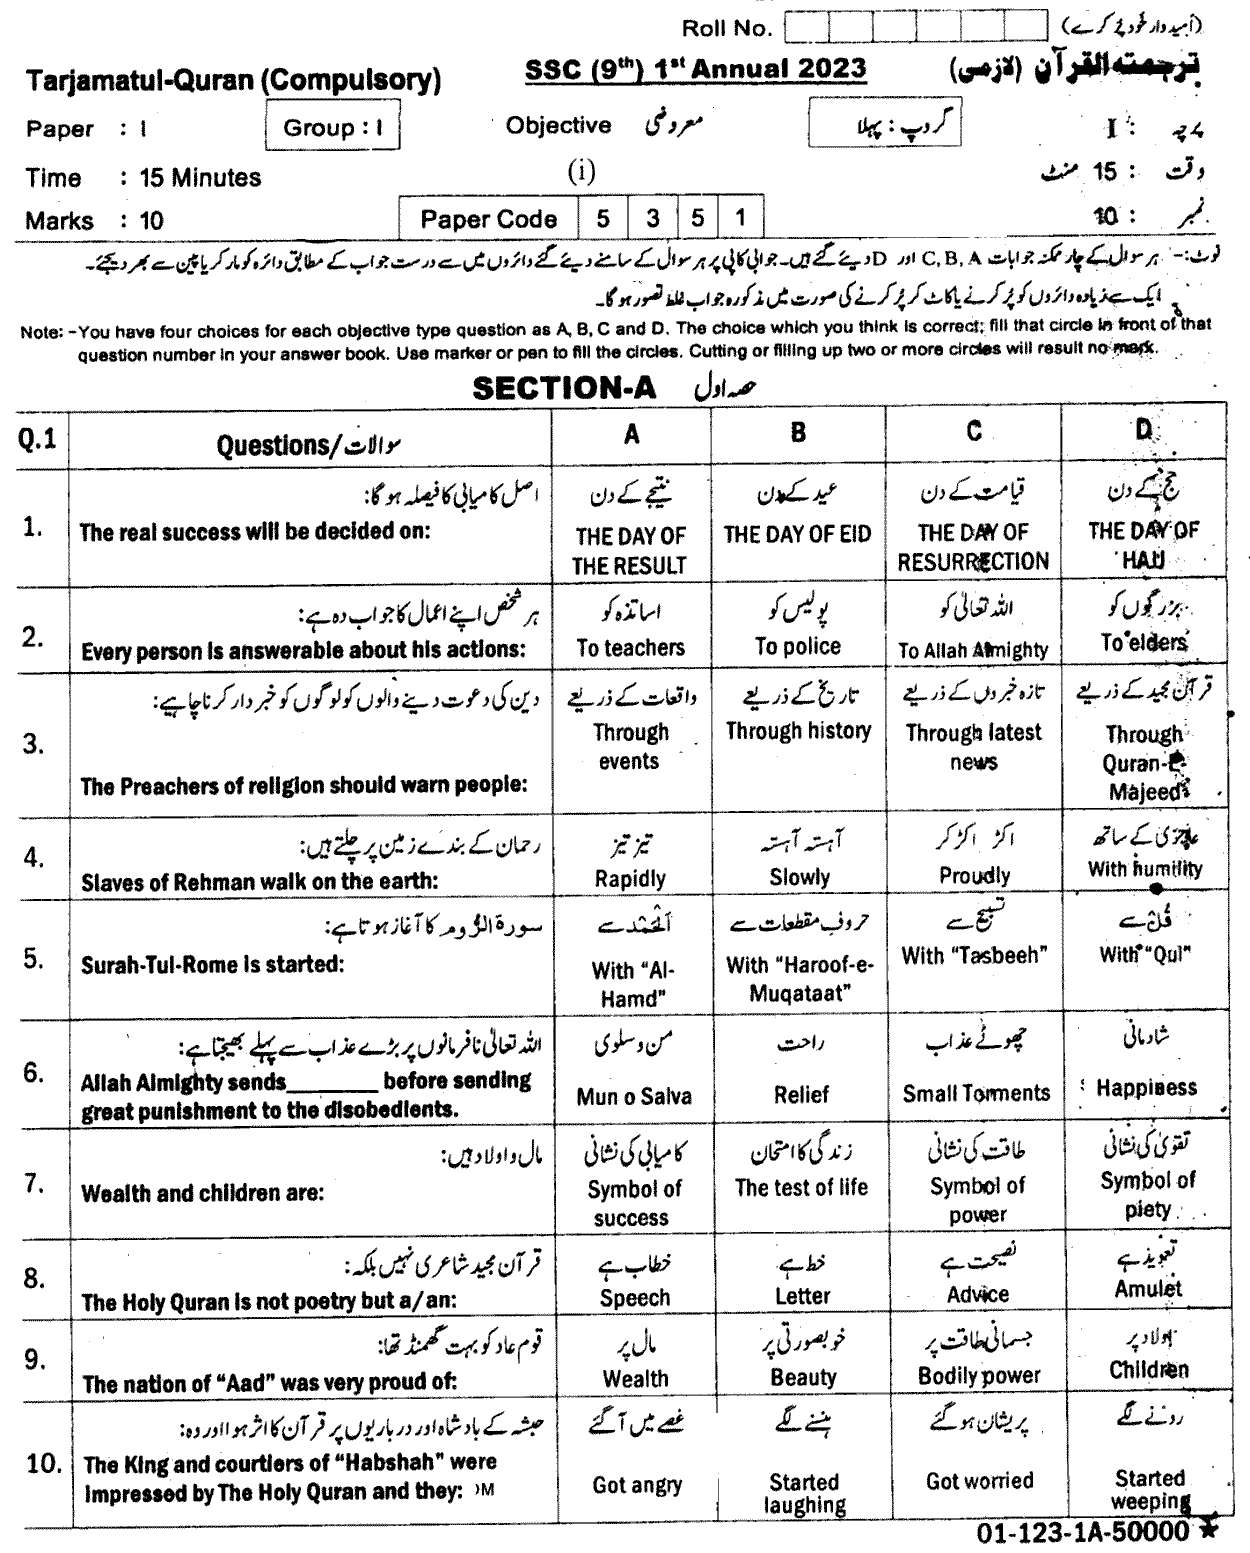 Roll No. (امیدوار خود پُر کرے)
Tarjamatul-Quran (Compulsory) SSC (9th) 1st Annual 2023 ترجمتہ القرآن (لازمی)
Paper : I Group : I Objective معروضی گروپ : پہلا پرچہ : I
Time : 15 Minutes (i) وقت : 15 منٹ
Marks : 10 Paper Code 5 3 5 1 نمبر : 10
نوٹ:- ہر سوال کے چار ممکنہ جوابات C, B, A اور D دیئے گئے ہیں۔ جوابی کاپی پر ہر سوال کے سامنے دیئے گئے دائروں میں سے درست جواب کے مطابق دائرہ کو مارکر یا پین سے بھر دیجئے۔
ایک سے زیادہ دائروں کو پُر کرنے یا کاٹ کر پُر کرنے کی صورت میں مذکورہ جواب غلط تصور ہوگا۔
Note: -You have four choices for each objective type question as A, B, C and D. The choice which you think is correct; fill that circle in front of that
question number in your answer book. Use marker or pen to fill the circles. Cutting or filling up two or more circles will result no mark.
SECTION-A حصہ اول
Q.1 Questions/سوالات A B C D
اصل کامیابی کا فیصلہ ہوگا: نتیجے کے دن عید کے دن قیامت کے دن حج کے دن
1. The real success will be decided on: THE DAY OF THE DAY OF EID THE DAY OF THE DAY OF
THE RESULT RESURRECTION HAJJ
ہر شخص اپنے اعمال کا جواب دہ ہے: اساتذہ کو پولیس کو اللہ تعالیٰ کو بزرگوں کو
2. Every person is answerable about his actions: To teachers To police To Allah Almighty To elders
دین کی دعوت دینے والوں کو لوگوں کو خبردار کرنا چاہیے: واقعات کے ذریعے تاریخ کے ذریعے تازہ خبروں کے ذریعے قرآن مجید کے ذریعے
3. Through Through history Through latest Through
events news Quran-e-
The Preachers of religion should warn people: Majeed
رحمان کے بندے زمین پر چلتے ہیں: تیز تیز آہستہ آہستہ اکڑ اکڑ کر عاجزی کے ساتھ
4. Slaves of Rehman walk on the earth: Rapidly Slowly Proudly With humility
سورۃ الرُّوم کا آغاز ہوتا ہے: اَلْحَمْد سے حروفِ مقطعات سے تسبیح سے قُلْ سے
5. Surah-Tul-Rome is started: With "Al- With "Haroof-e- With "Tasbeeh" With "Qul"
Hamd" Muqataat"
اللہ تعالیٰ نافرمانوں پر بڑے عذاب سے پہلے بھیجتا ہے: من و سلویٰ راحت چھوٹے عذاب شادمانی
6. Allah Almighty sends________ before sending Mun o Salva Relief Small Torments Happiness
great punishment to the disobedients.
مال و اولاد ہیں: کامیابی کی نشانی زندگی کا امتحان طاقت کی نشانی تقویٰ کی نشانی
7. Wealth and children are: Symbol of The test of life Symbol of Symbol of
success power piety
قرآن مجید شاعری نہیں بلکہ: خطاب ہے خط ہے نصیحت ہے تعویذ ہے
8. The Holy Quran is not poetry but a/an: Speech Letter Advice Amulet
قوم عاد کو بہت گھمنڈ تھا: مال پر خوبصورتی پر جسمانی طاقت پر اولاد پر
9. The nation of "Aad" was very proud of: Wealth Beauty Bodily power Children
حبشہ کے بادشاہ اور درباریوں پر قرآن کا اثر ہوا اور وہ: غصے میں آ گئے ہنسنے لگے پریشان ہو گئے رونے لگے
10. The King and courtiers of "Habshah" were Got angry Started Got worried Started
impressed by The Holy Quran and they: laughing weeping
01-123-1A-50000 ★